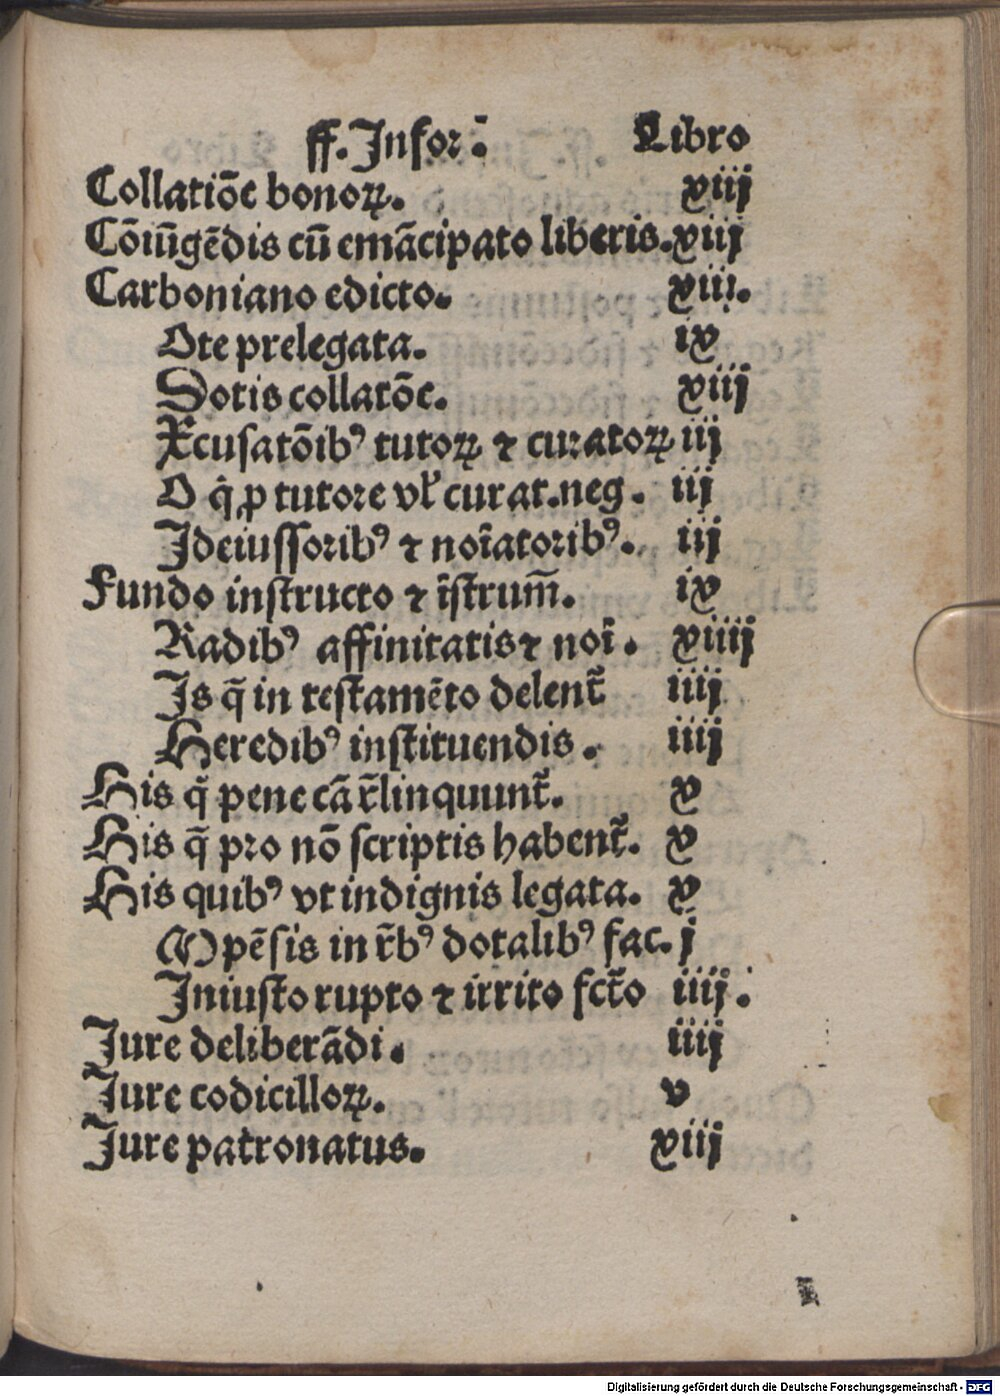 ff. Infor⁊̄. Libro
Collatiōe bonoꝝ. xiij
Cōiūgēdis cū emācipato liberis. xiij
Carboniano edicto. xiij.
Ote prelegata. ix
Dotis collatōe. xiij
Xcusatōibꝰ tutoꝝ ⁊ curatoꝝ iij
O q̇ ꝓ tutore vl̓ curat. neg. iij
Ideiussoribꝰ ⁊ noīatoribꝰ. iij
Fundo instructo ⁊ īstrum̄. ix
Radibꝰ affinitatis ⁊ noī. xiiij
Is q̄ in testamēto delent᷑ iiij
Heredibꝰ instituendis. iiij
His q̄ pene cā r̄linquunt᷑. x
His q̄ pro nō scriptis habent᷑. x
His quibꝰ vt indignis legata. x
Mpēsis in r̄bꝰ dotalibꝰ fac. j
Iniusto rupto ⁊ irrito fct̄o iiij.
Jure deliberādi. iiij
Jure codicilloꝝ. v
Jure patronatus. xiij
Digitalisierung gefördert durch die Deutsche Forschungsgemeinschaft - DFG